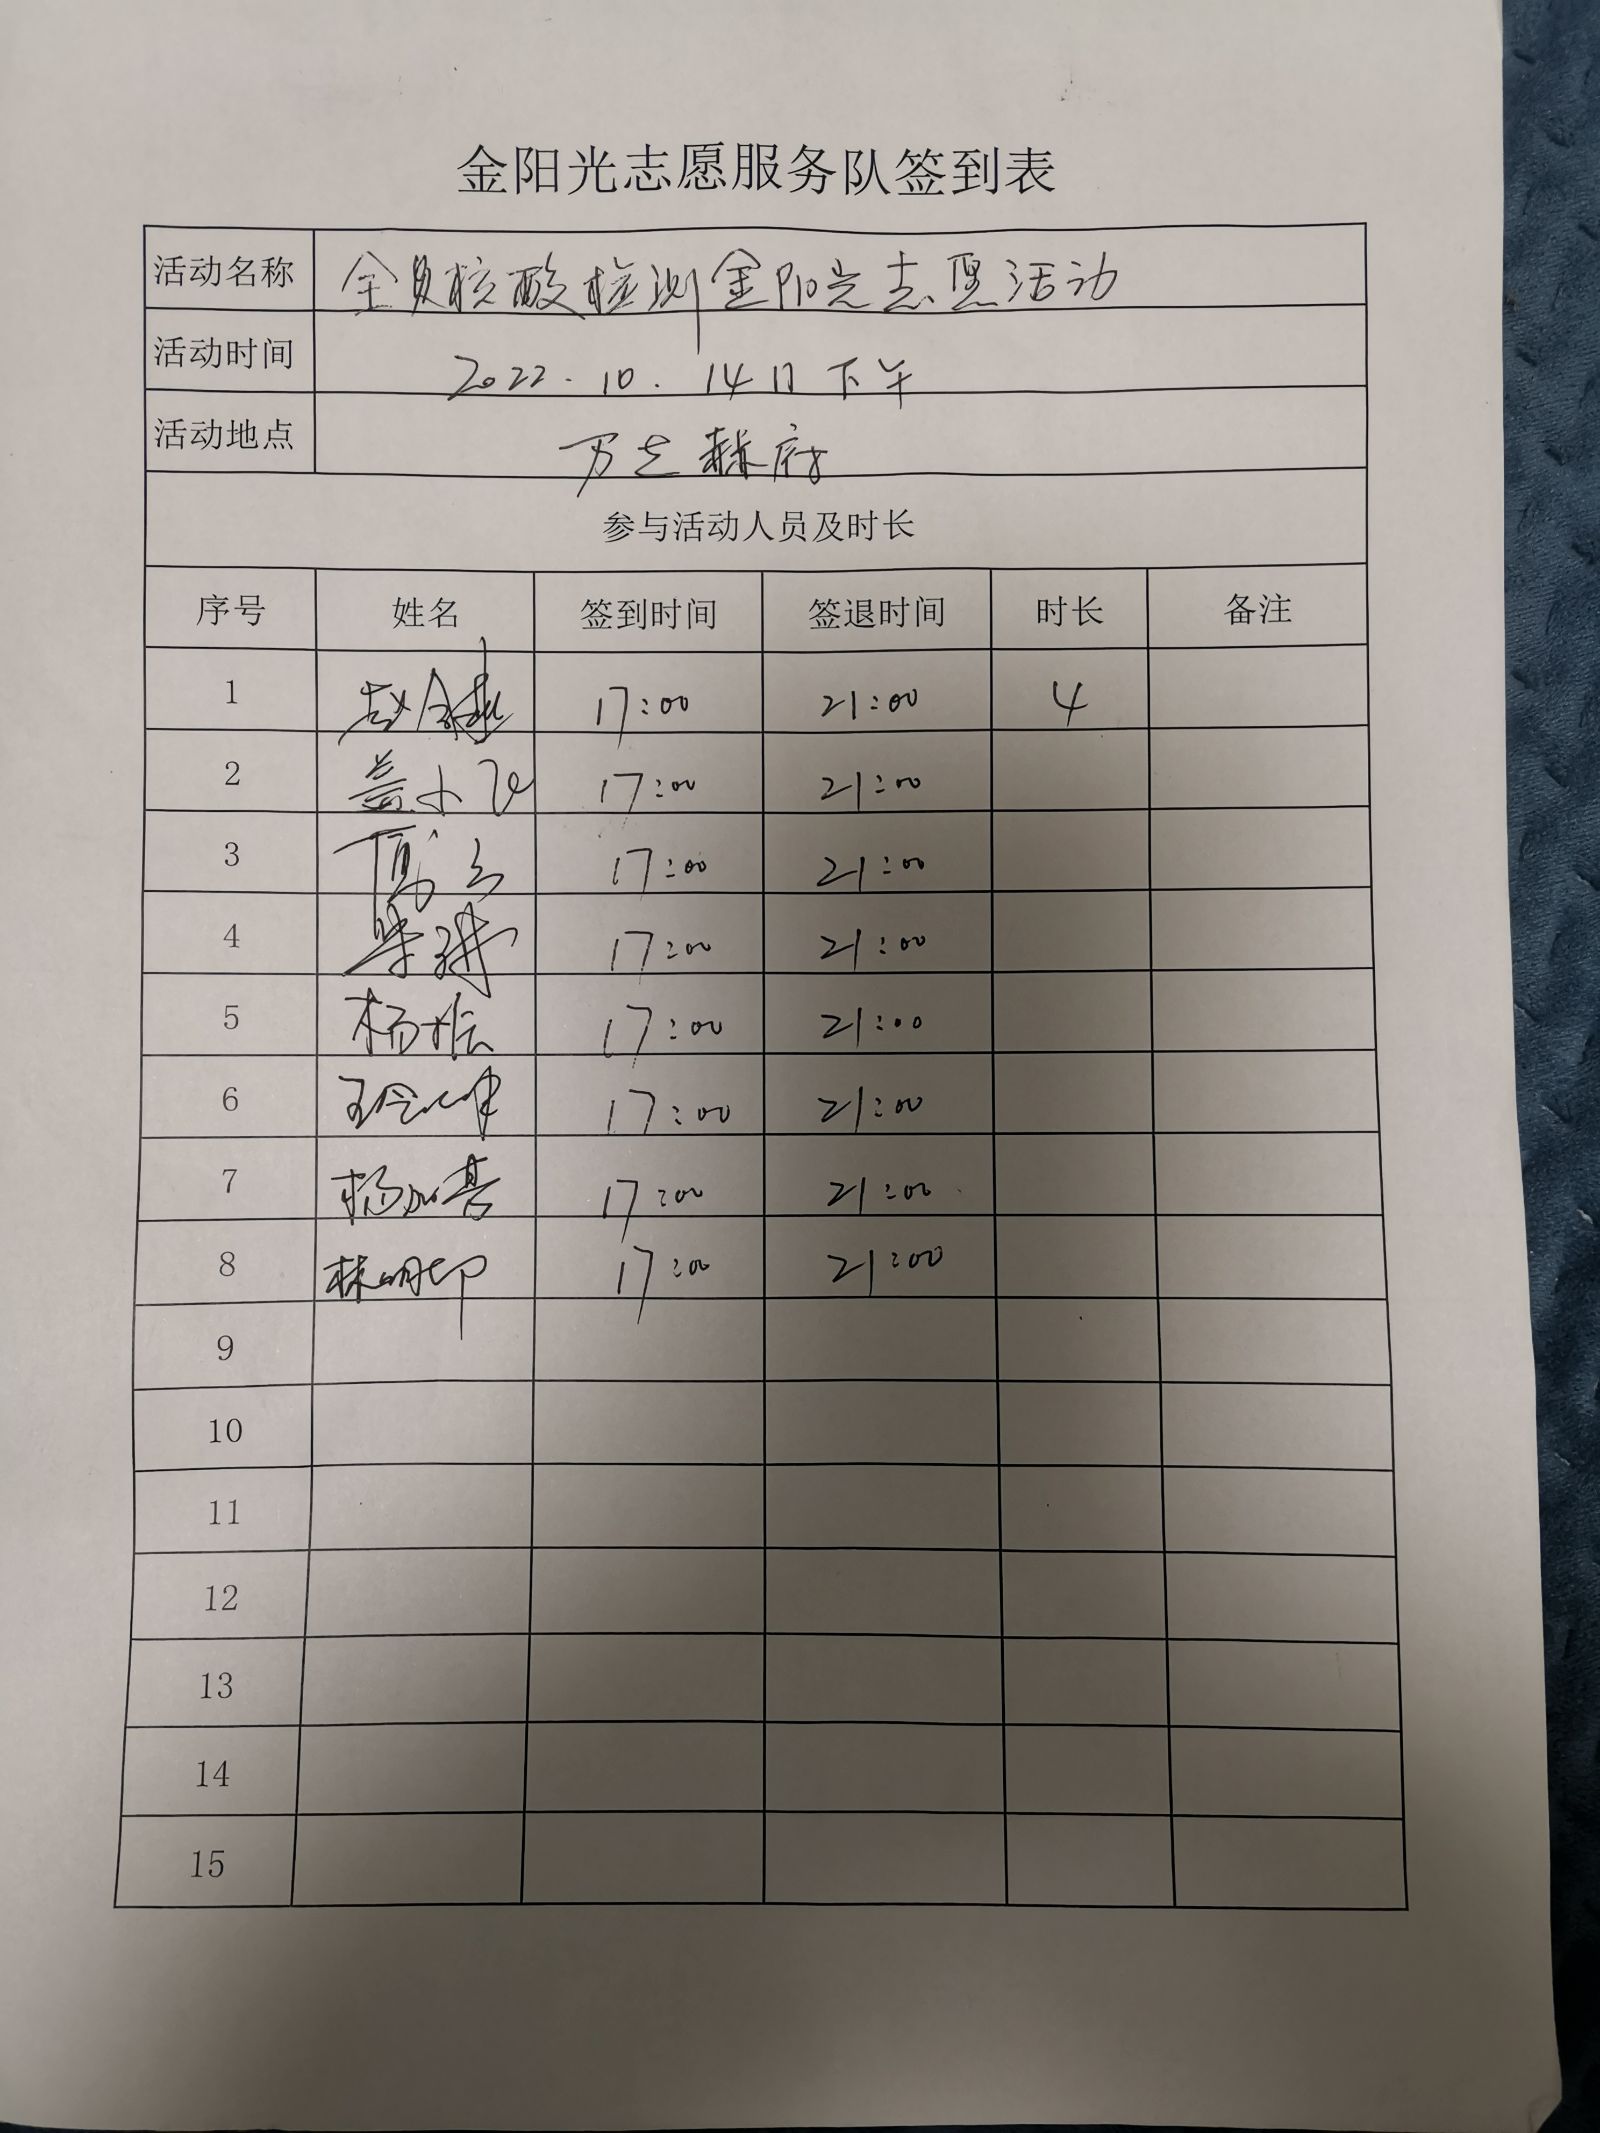 金阳光志愿服务队签到表
活动名称 全员核酸检测金阳光志愿活动
活动时间 2022.10.14日下午
活动地点 万芝赫府
参与活动人员及时长
序号 姓名 签到时间 签退时间 时长 备注
1 17:00 21:00 4
2 盖小飞 17:00 21:00
3 17:00 21:00
4 17:00 21:00
5 17:00 21:00
6 17:00 21:00
7 17:00 21:00
8 林明印 17:00 21:00
9
10
11
12
13
14
15